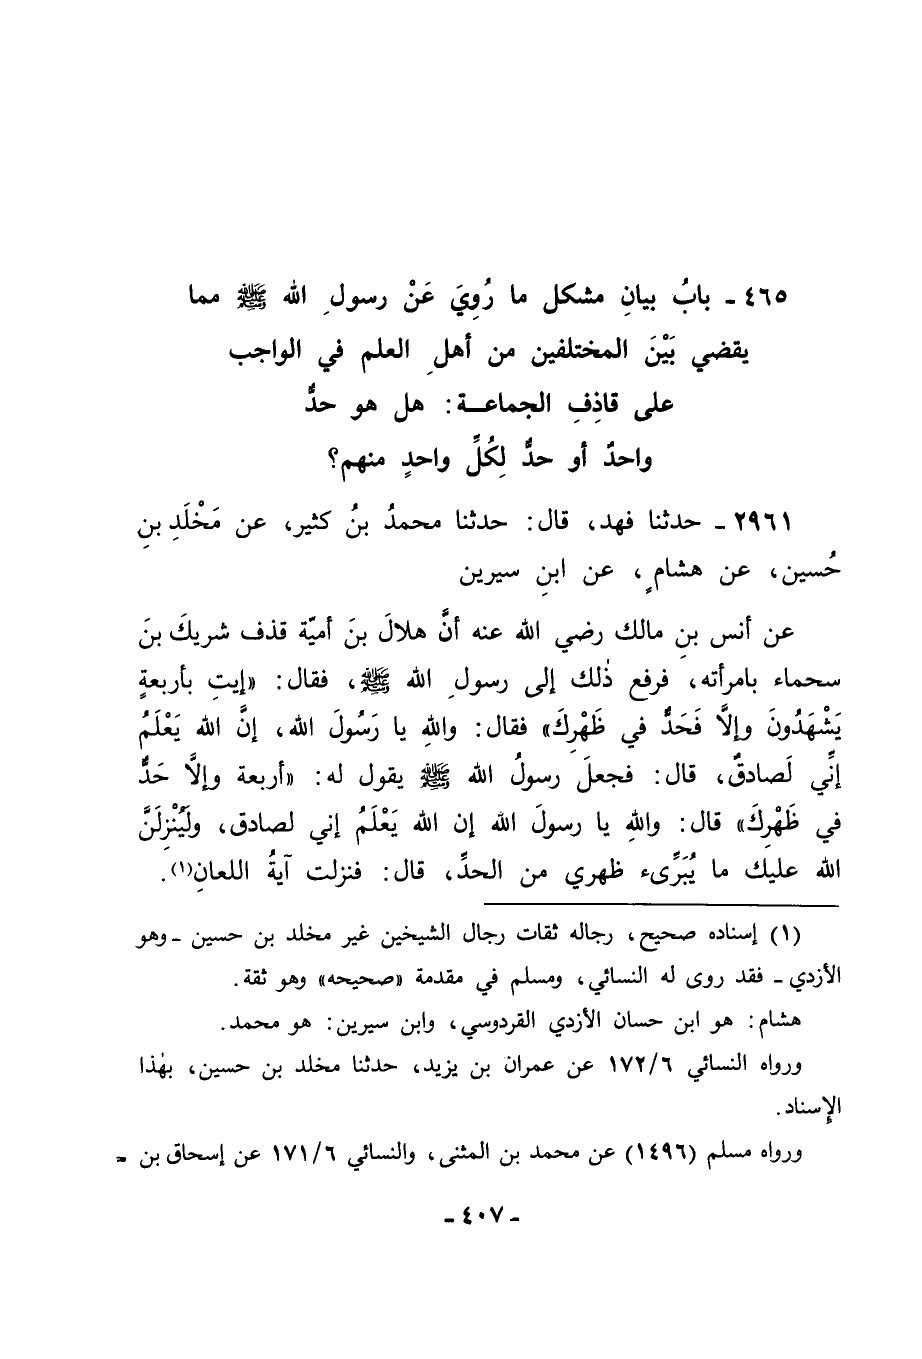 ٤٦٥ ـ بابُ بيانِ مشكل ما رُوِيَ عَنْ رسولِ الله ﷺ مما
يقضي بَيْنَ المختلفين من أهلِ العلم في الواجب
على قاذِفِ الجماعـــة: هل هو حدٌّ
واحدٌ أو حدٌّ لِكُلِّ واحدٍ منهم؟
٢٩٦١ ـ حدثنا فهد، قال: حدثنا محمدُ بنُ كثير، عن مَخْلَدِ بنِ
حُسين، عن هشامٍ، عن ابنِ سيرين
عن أنس بنِ مالك رضي الله عنه أنَّ هلالَ بنَ أميّة قذف شريكَ بنَ
سحماء بامرأته، فرفع ذٰلك إلى رسولِ الله ﷺ، فقال: «إيتِ بأربعةٍ
يَشْهَدُونَ وإلَّا فَحَدٌّ في ظَهْرِكَ» فقال: واللهِ يا رَسُولَ الله، إنَّ الله يَعْلَمُ
إنِّي لَصادقٌ، قال: فجعلَ رسولُ الله ﷺ يقول له: «أربعة وإلَّا حَدٌّ
في ظَهْرِكَ» قال: واللهِ يا رسولَ الله إن الله يَعْلَمُ إني لصادق، ولَيُنْزِلَنَّ
الله عليك ما يُبَرِّىء ظهري من الحدِّ، قال: فنزلت آيةُ اللعانِ(١).
(١) إسناده صحيح، رجاله ثقات رجال الشيخين غير مخلد بن حسين ـ وهو
الأزدي ـ فقد روى له النسائي، ومسلم في مقدمة «صحيحه» وهو ثقة.
هشام: هو ابن حسان الأزدي القردوسي، وابن سيرين: هو محمد.
ورواه النسائي ١٧٢/٦ عن عمران بن يزيد، حدثنا مخلد بن حسين، بهٰذا
الإسناد.
ورواه مسلم (١٤٩٦) عن محمد بن المثنى، والنسائي ١٧١/٦ عن إسحاق بن =
ـ ٤٠٧ ـ